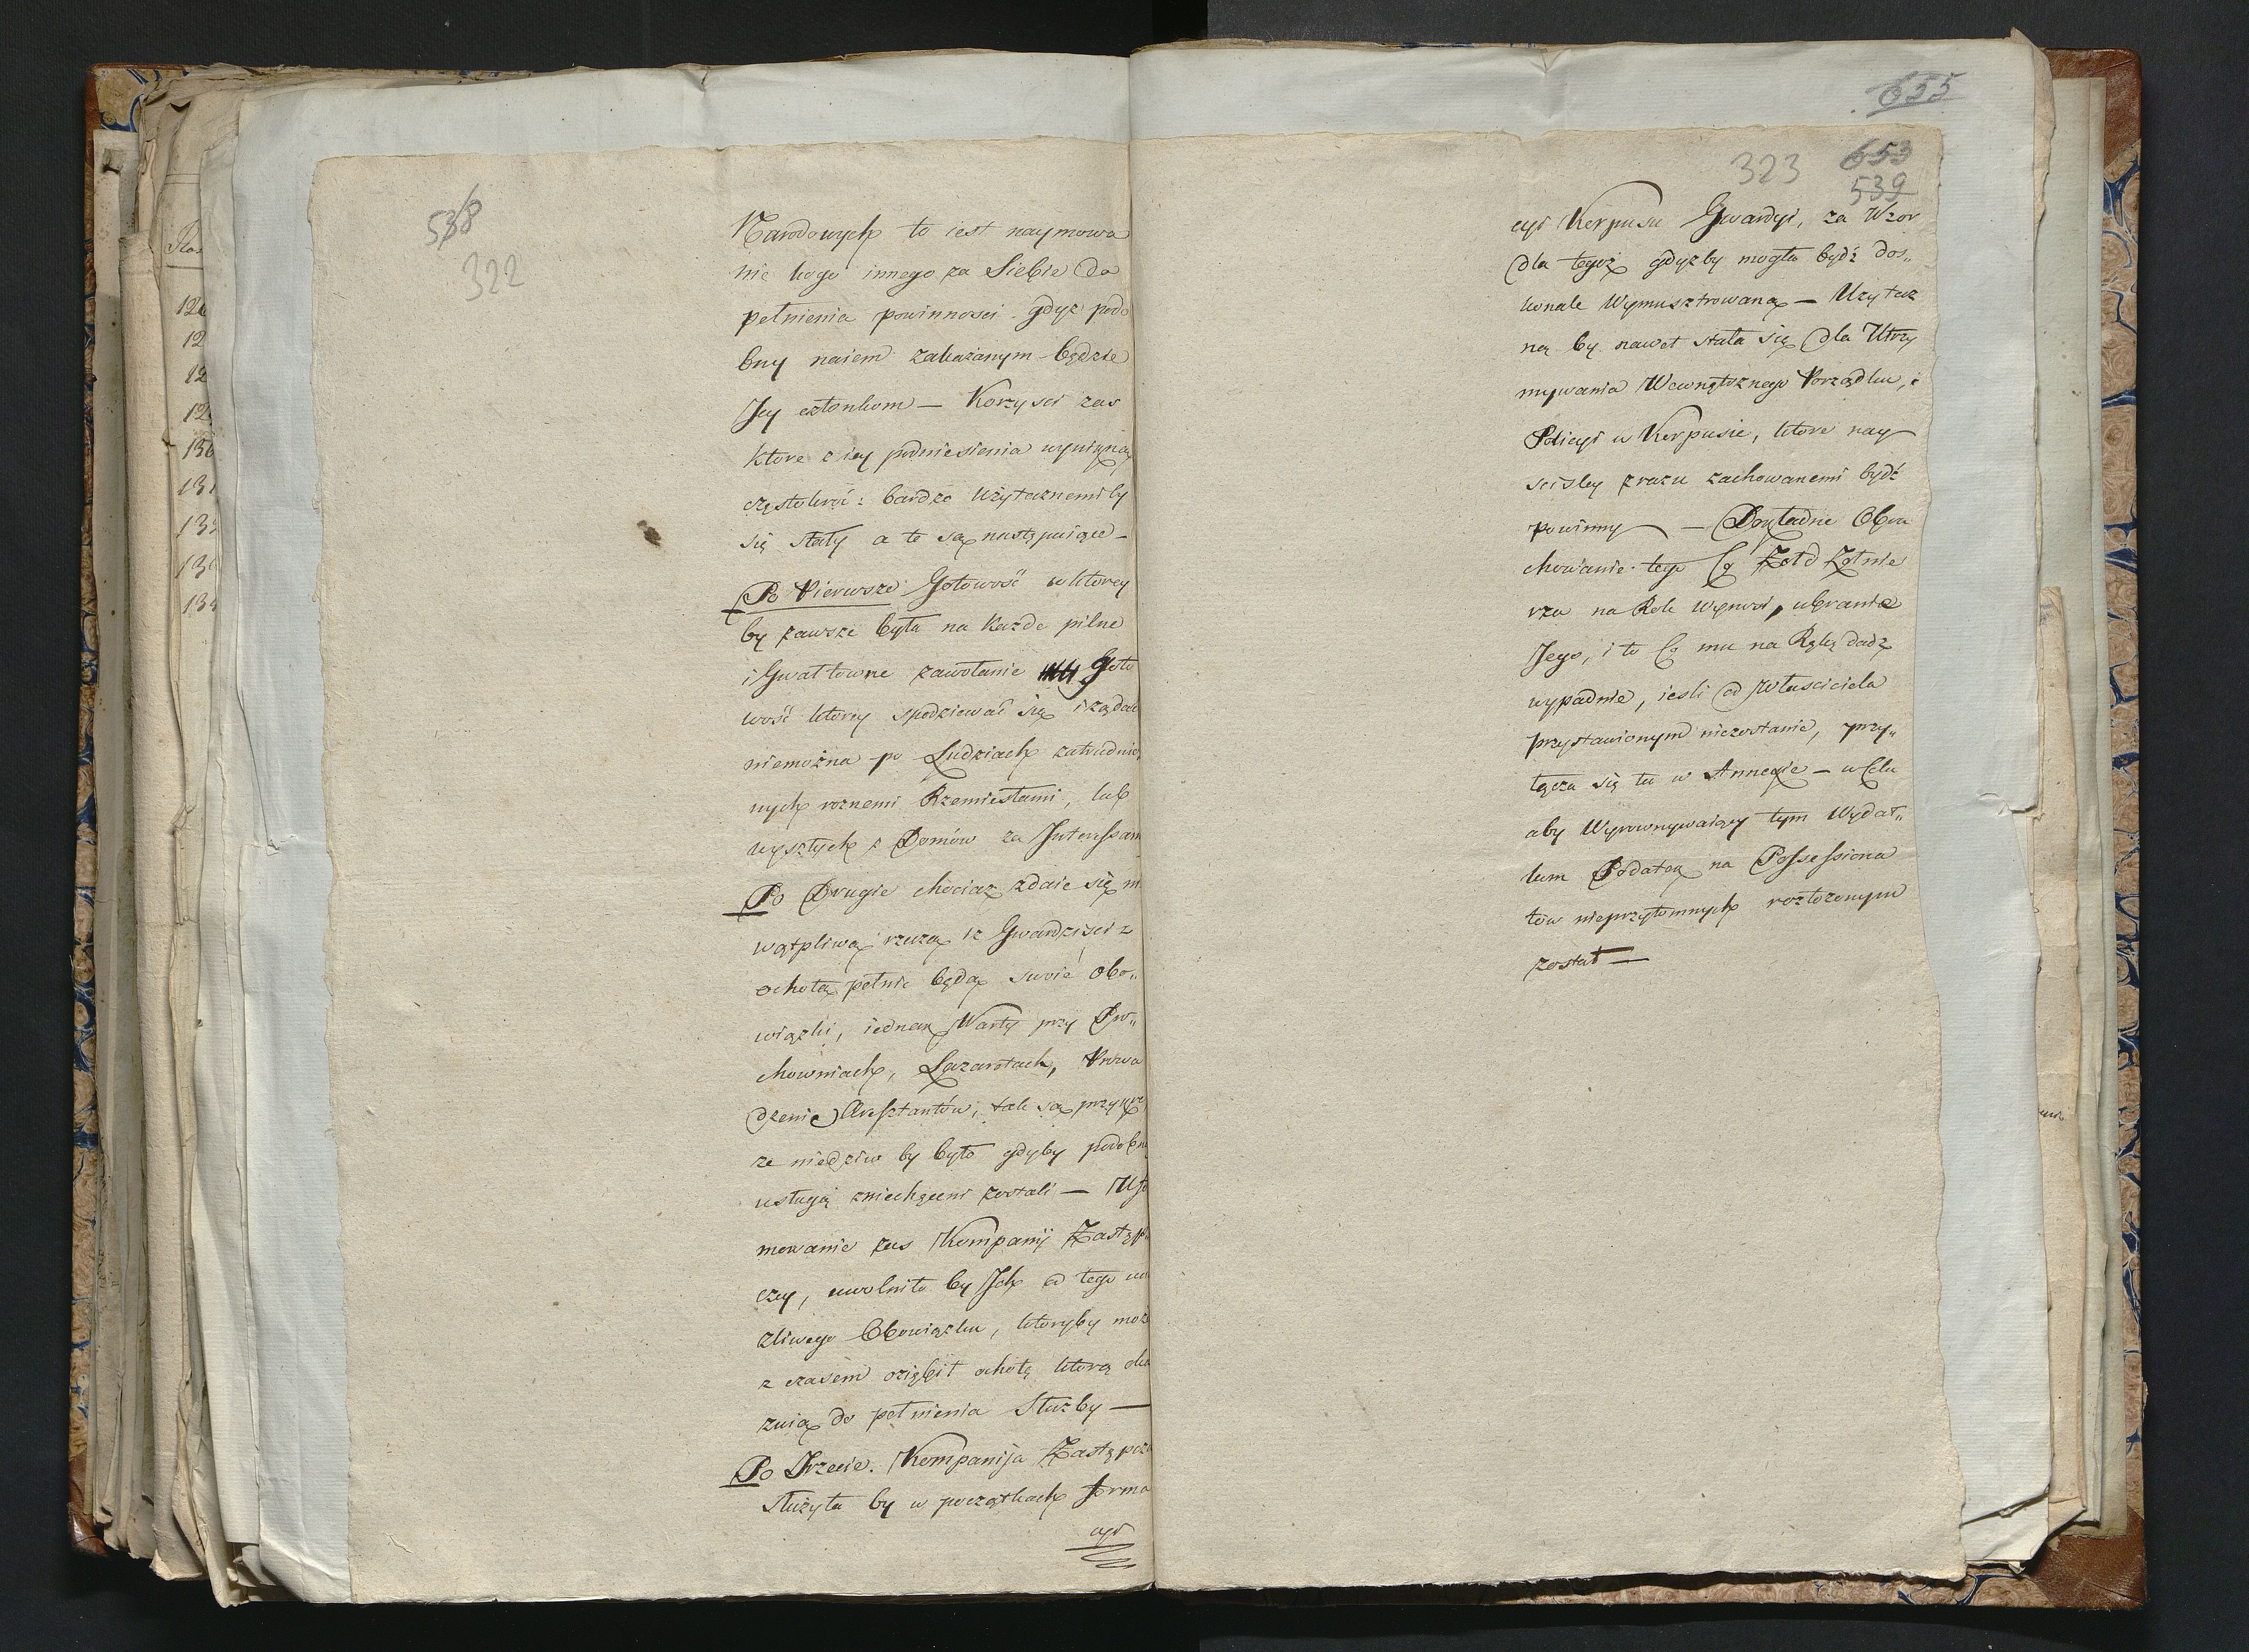 538
322
Narodowych to iest naymowa
nie kogo innego za Siebie do
pełnienia powinnosci gdyż podo
bny naiem zakazanym będzie
Jey członkom — Korzysci zas
które z iey podniesienia wynikną
częstokroć bardzo użytecznemi by
się stały a te są następuiące —
Po Pierwsze Gotowość w ktorey
by zawsze była na każde pilne
i Gwałtowne zawołanie Goto
wość ktorey spodziewać się i żądać
niemożna po Ludziach zatrudnio
nych roznemi Rzemiesłami, lub
wyszłych z Domów za Interessam
Po Drugie chociaz zdaie się
wątpliwą rzeczą iż Gwardzisci z
ochotą pełnić będą swoie obo„
wiązki, iednak Warty przy Pro„
chowniach, Lazaretach, Prowa
dzenie Aresztantów, tak są przykre
że niedziw by było gdyby podobną
usługą zniechęceni zostali — Ufor
mowanie zas Kompanij Zastęp
czey, uwolniło by Ich od tego
żliwego Obowiązku, ktoryby może
z czasem oziębił ochotę którą oka
zuią do pełnienia Służby —
Po Trzecie. Kompanija Zastępcza
służyła by w początkach forma
cyi
655
323 653
539
cyi Korpusu Gwardyi, za Wzor
dla tegoż gdyżby mogła bydź dos„
konale Wymusztrowaną — Użytecz
ną by nawet stała się dla Utrzy
mywania Wewnętrznego Porządku, i
Policyi w Korpusie, ktore nay
scisley zrazu zachowanemi bydź
powinny — Dokładne Obra
chowanie tego Co Żołd Żołnie
rza na Rok wynosi, ubranie
Jego, i to Co mu na Rękę dadz
wypadnie, iesli od własciciela
przystawionym niezostanie, przy„
łącza się tu w Annexie — w Celu
aby Wyrownywaiący tym Wydat„
kom Podatek na Possessiona
tów nieprzytomnych rozłożonym
został —